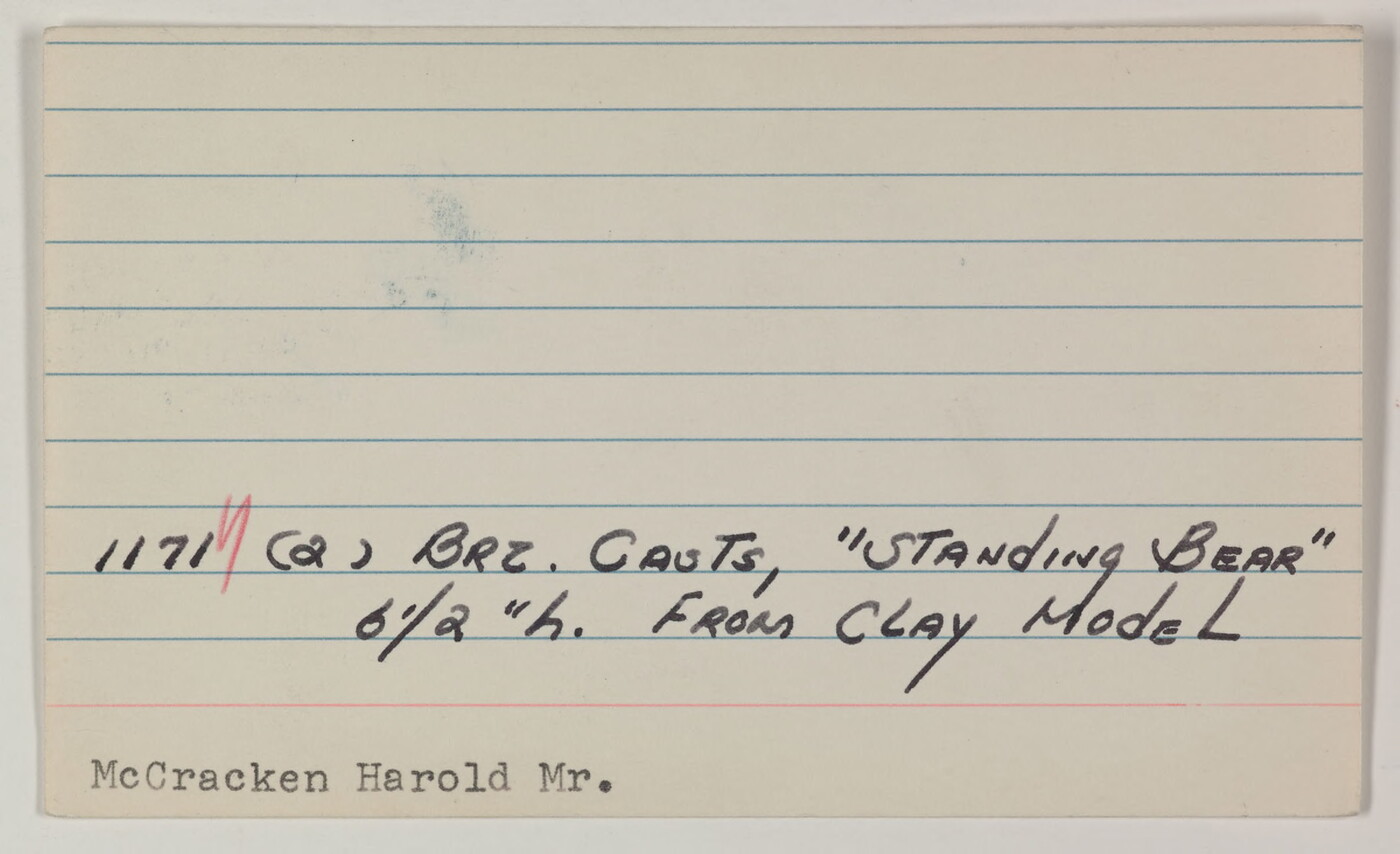 11717 (2) BRZ. CASTS, "STANDING BEAR"
6 1/2 "h. FROM CLAY MODEL
McCracken Harold Mr.